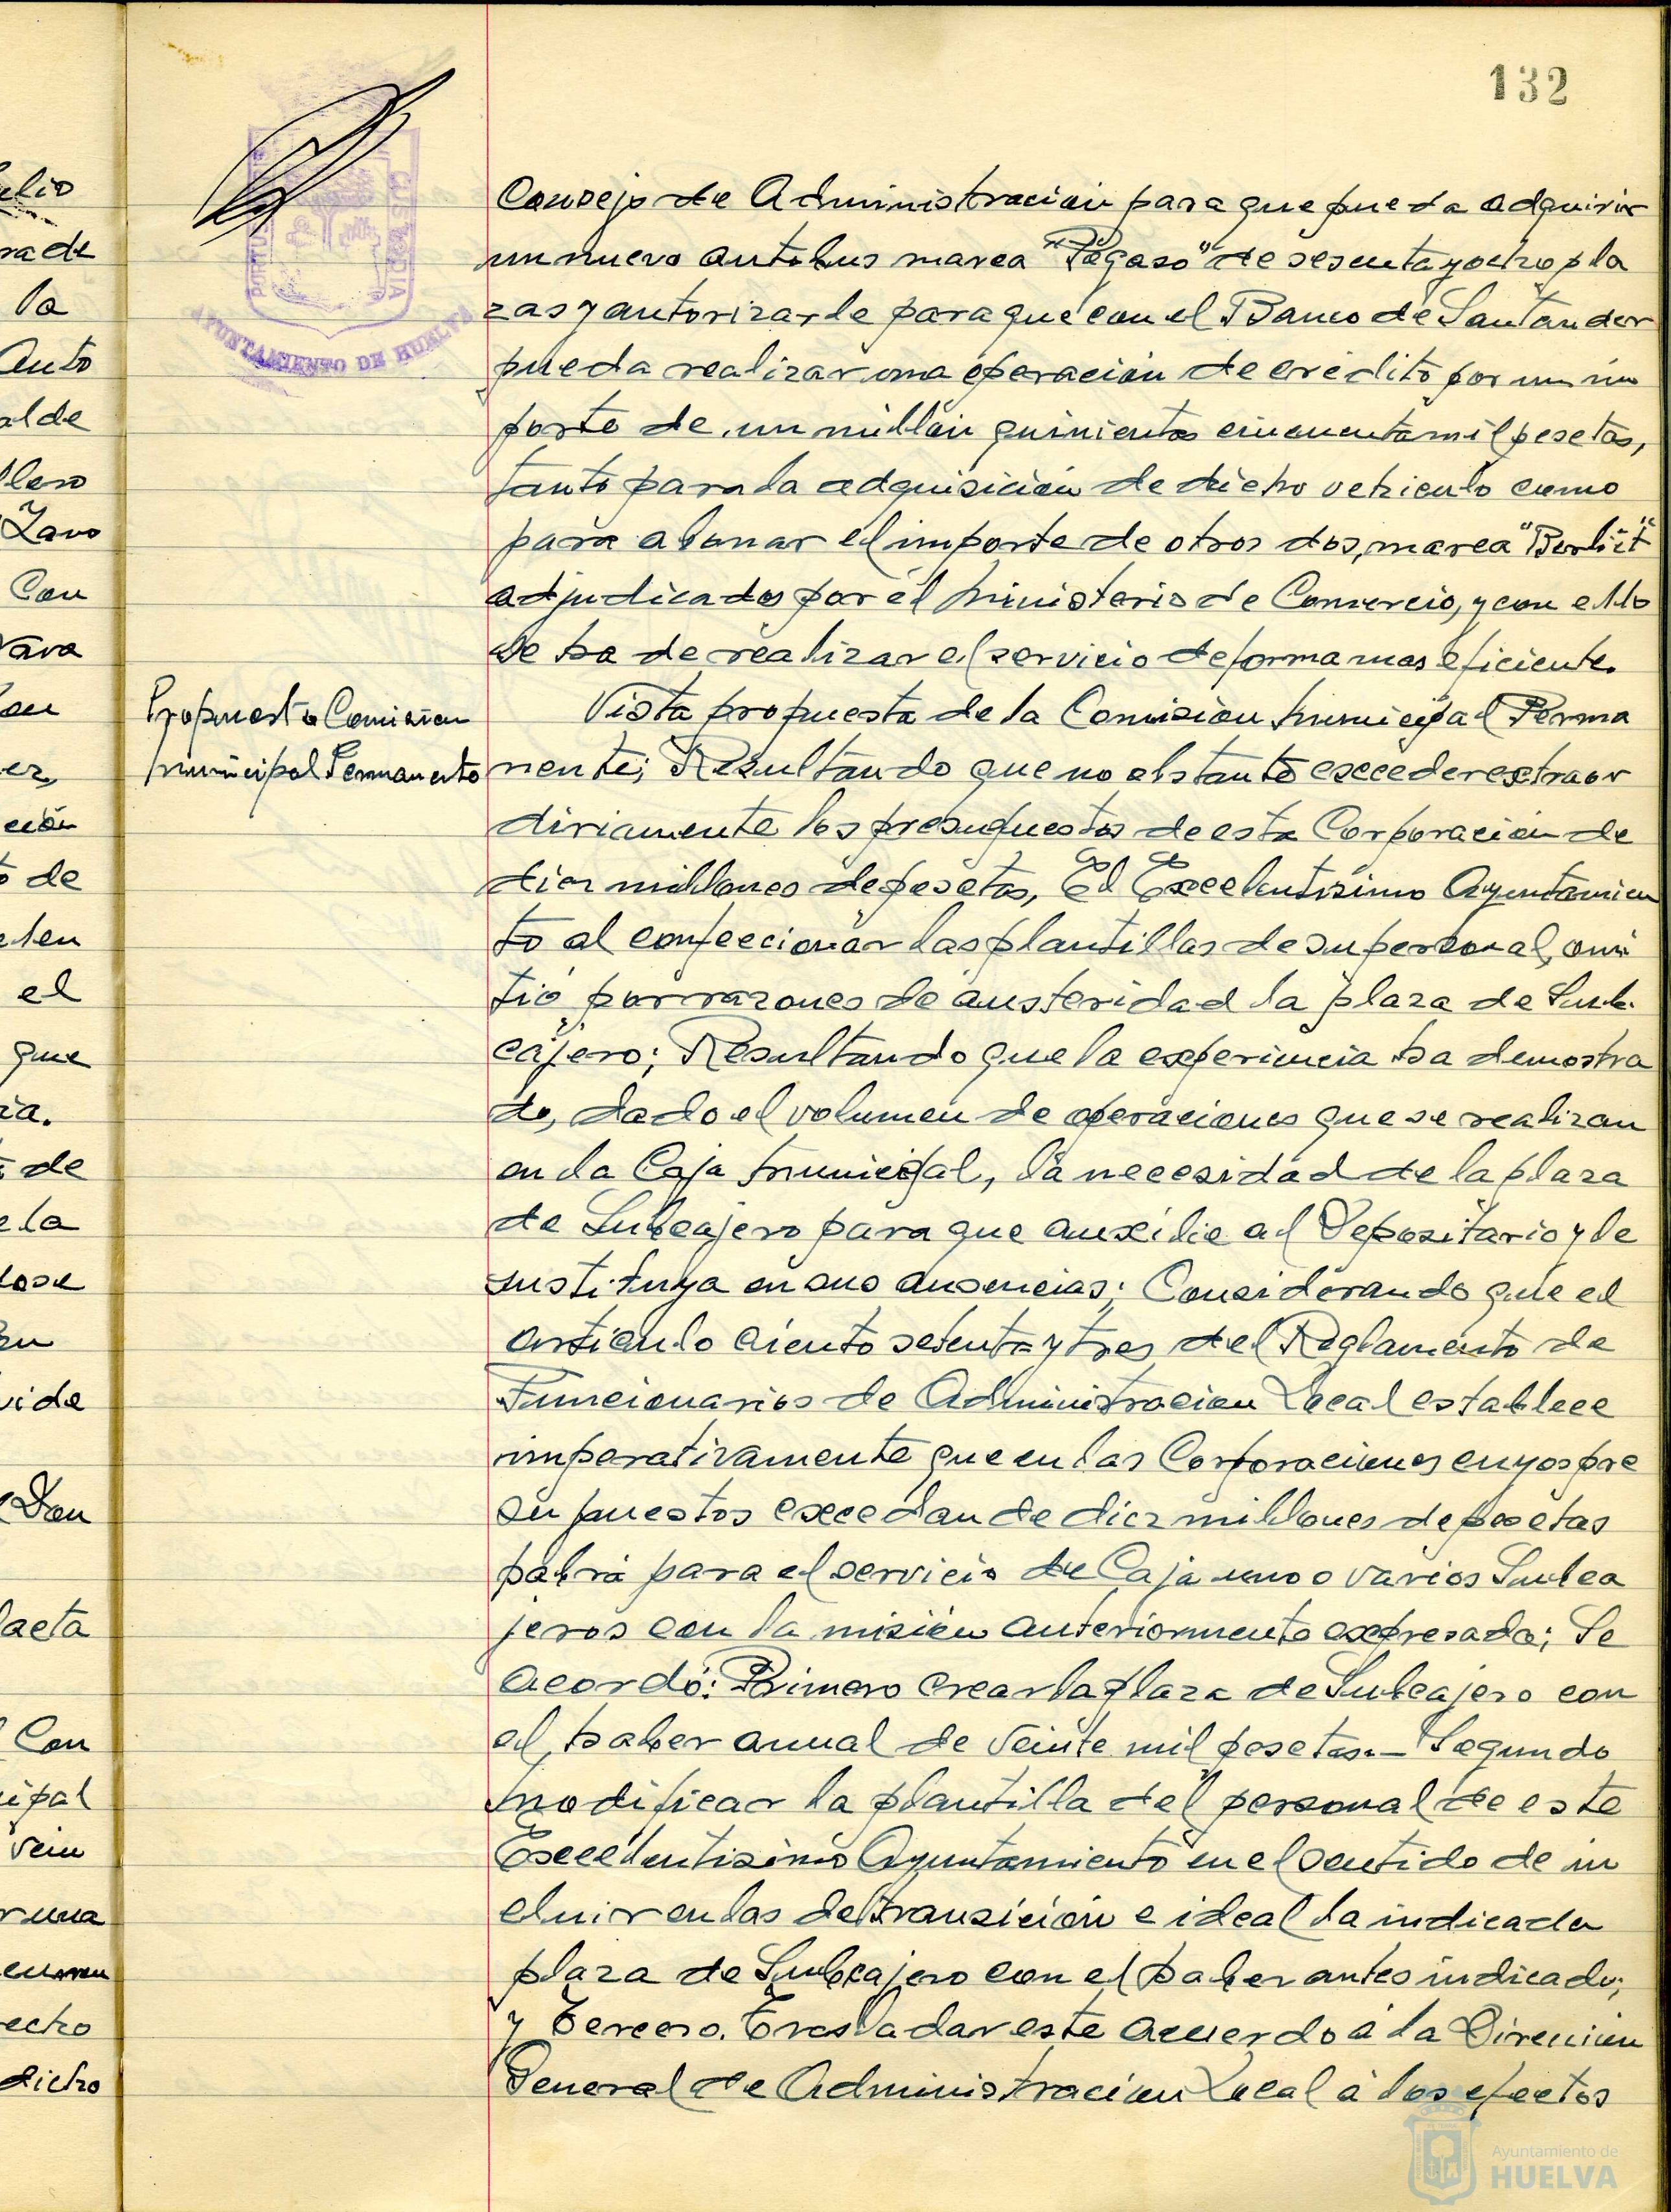 132
PORTUS MARIS ET TERRAE CUSTODIA
AYUNTAMIENTO DE HUELVA
Consejo de Administración para que pueda adquirir
un nuevo autobus marca "Pegaso" de sesenta y ocho pla
zas y autorizarle para que con el Banco de Santander
pueda realizar una operación de crédito por un im
porte de un millón quinientas cincuenta mil pesetas,
tanto para la adquisición de dicho vehiculo como
para abonar el importe de otros dos, marca "Berliet"
adjudicados por el Ministerio de Comercio, y con ello
se ha de realizar el servicio de forma mas eficiente.
Propuesta Comision
Municipal Permanente
Vista propuesta de la Comision Municipal Perma
nente; Resultando que no obstante exceder extraor
diniamente los presupuestos de esta Corporacion de
diez millones de pesetas, El Excelentisimo Ayuntamien
to al confeccionar las plantillas de su personal, omi
tió por razones de austeridad la plaza de Sub-
cajero; Resultando que la experiencia ha demostra
do, dado el volumen de operaciones que se realizan
en la Caja Municipal, la necesidad de la plaza
de Subcajero para que auxilie al Depositario y le
sustituya en sus ausencias; Considerando que el
articulo ciento setenta y tres del Reglamento de
Funcionarios de Administracion Local establece
imperativamente que en las Corporaciones cuyos pre
supuestos excedan de diez millones de pesetas
habrá para el servicio de Caja uno o varios Subca
jeros con la misión anteriormente expresada; Se
acordó: Primero crear la plaza de Subcajero con
el haber anual de veinte mil pesetas.- Segundo
Modificar la plantilla del personal de este
Excelentisimo Ayuntamiento en el sentido de in
cluir en las de transición e ideal la indicada
plaza de Subcajero con el haber antes indicado;
y Tercero. Trasladar este acuerdo a la Direccion
General de Administracion Local á los efectos
Ayuntamiento de
HUELVA